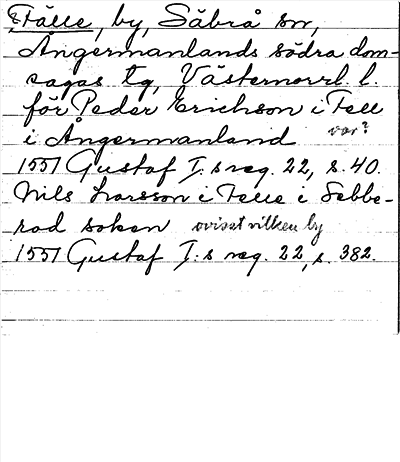 Fälle, by, Säbrå sn,
Ångermanlands södra dom-
sagas tg, Västernorrl. l.
för Peder Erichson i Fell
i Ångermanland var?
1551 Gustaf I:s reg. 22, s. 40.
Nils Larsson i Felle i Sebbe-
rad soken ovisst vilken by
1551 Gustaf I:s reg. 22, s. 382.